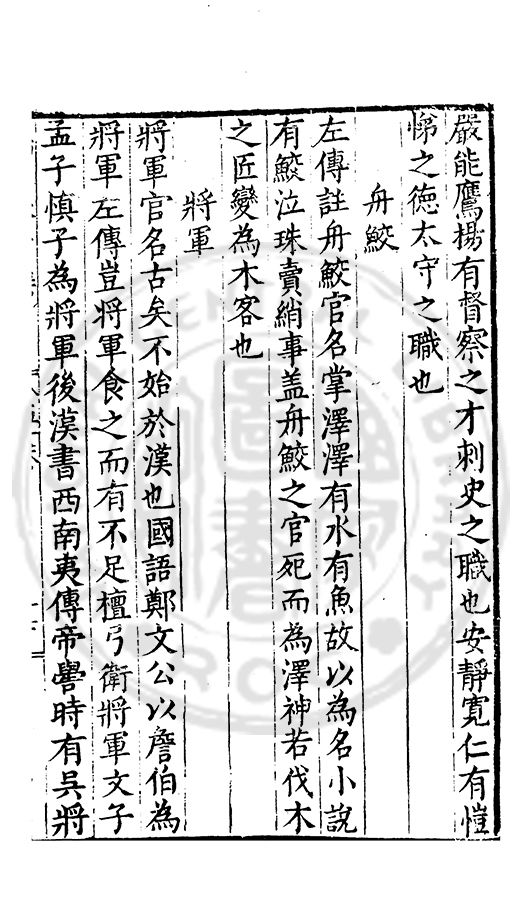 嚴能鷹揚有督察之才刺史之職也安靜寬仁有愷
悌之德太守之職也
舟鮫
左傳註舟鮫官名掌澤澤有水有魚故以為名小說
有鮫泣珠賣綃事盖舟鮫之官死而為澤神若伐木
之匠變為木客也
將軍
將軍官名古矣不始於漢也國語鄭文公以詹伯為
將軍左傳豈將軍食之而有不足檀弓衛將軍文子
孟子慎子為將軍後漢書西南夷傳帝嚳時有吳將